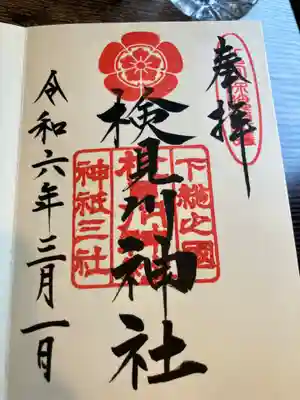 奉拝
検見川神社
下総之國
神祇三社
令和六年三月一日